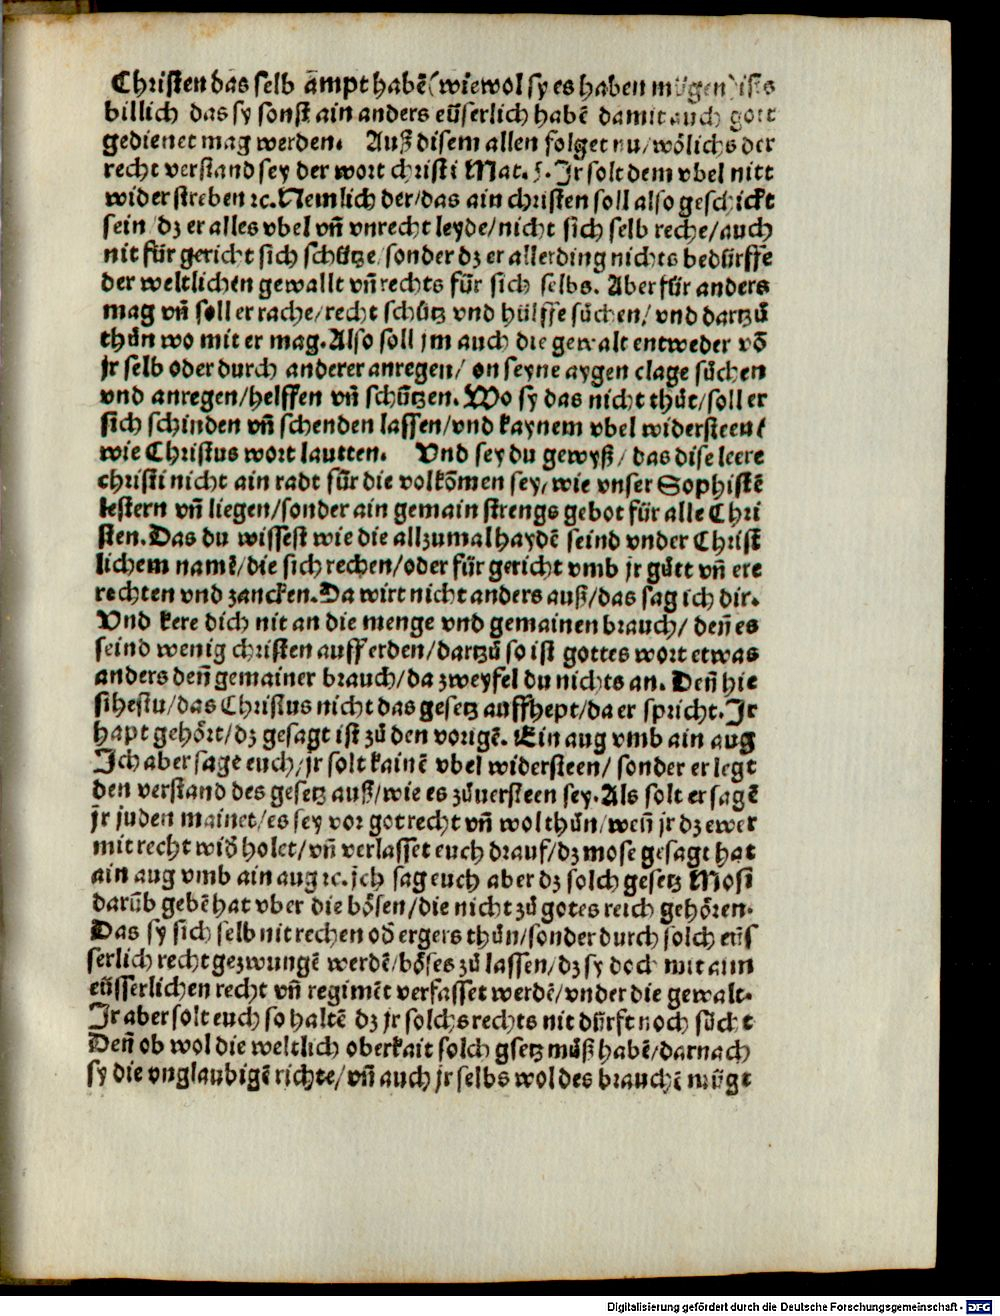 Christen das selb ampt habē (wiewol sy es haben mügen) ists
billich das sy sonst ain anders eüserlich habē damit auch gott
gedienet mag werden. Auß disem allen folget nu/wölichs der
recht verstand sey der wort christi Mat. 5. Jr solt dem vbel nitt
widerstreben ꝛc. Nemlich der/das ain christen soll also geschickt
sein/dz er alles vbel vn̄ vnrecht leyde/nicht sich selb reche/auch
nit für gericht sich schütze/sonder dz er allerding nichts bedürffe
der weltlichen gewallt vn̄ rechts für sich selbs. Aber für anders
mag vn̄ soll er rache/recht schütz vnd hülffe sůchen/vnd dartzů
thůn wo mit er mag. Also soll jm auch die gewalt entweder vō
jr selb oder durch anderer anregen/on seyne aygen clage sůchen
vnd anregen/helffen vn̄ schützen. Wo sy das nicht thůt/soll er
sich schinden vn̄ schenden lassen/vnd kaynem vbel widersteen/
wie Christus wort lautten. Vnd sey du gewyß/das dise leere
christi nicht ain radt für die volkōmen sey/wie vnser Sophistē
lestern vn̄ liegen/sonder ain gemain strengs gebot für alle Chri
sten. Das du wissest wie die allzumal haydē seind vnder Christ
lichem namē/die sich rechen/oder für gericht vmb jr gůtt vn̄ ere
rechten vnd zancken. Da wirt nicht anders auß/das sag ich dir.
Vnd kere dich nit an die menge vnd gemainen brauch/den̄ es
seind wenig christen auff erden/dartzů so ist gottes wort etwas
anders den̄ gemainer brauch/da zweyfel du nichts an. Den̄ hie
sihestu/das Christus nicht das gesetz auffhept/da er spricht. Jr
hapt gehört/dz gesagt ist zů den vorigē. Ein aug vmb ain aug
Jch aber sage euch/jr solt kainē vbel widersteen/sonder er legt
den verstand des gesetz auß/wie es zůuersteen sey. Als solt er sagē
jr juden mainet/es sey vor got recht vn̄ wol thůn/wen̄ jr dz ewer
mit recht wid̄ holet/vn̄ verlasset euch drauf/dz mose gesagt hat
ain aug vmb ain aug ꝛc. jch sag euch aber dz solch gesetz Mosi
darūb gebē hat vber die bösen/die nicht zů gotes reich gehören.
Das sy sich selb nit rechen od̄ ergers thůn/sonder durch solch eüs
serlich recht gezwungē werdē/böses zů lassen/dz sy doch mit aim
eüsserlichen recht vn̄ regimēt verfasset werdē/vnder die gewalt.
Jr aber solt euch so haltē dz jr solchs rechts nit dürft noch sůcht
Den̄ ob wol die weltlich oberkait solch gsetz můß habē/darnach
sy die vnglaubigē richte/vn̄ auch jr selbs wol des brauchē mügt
Digitalisierung gefördert durch die Deutsche Forschungsgemeinschaft - DFG